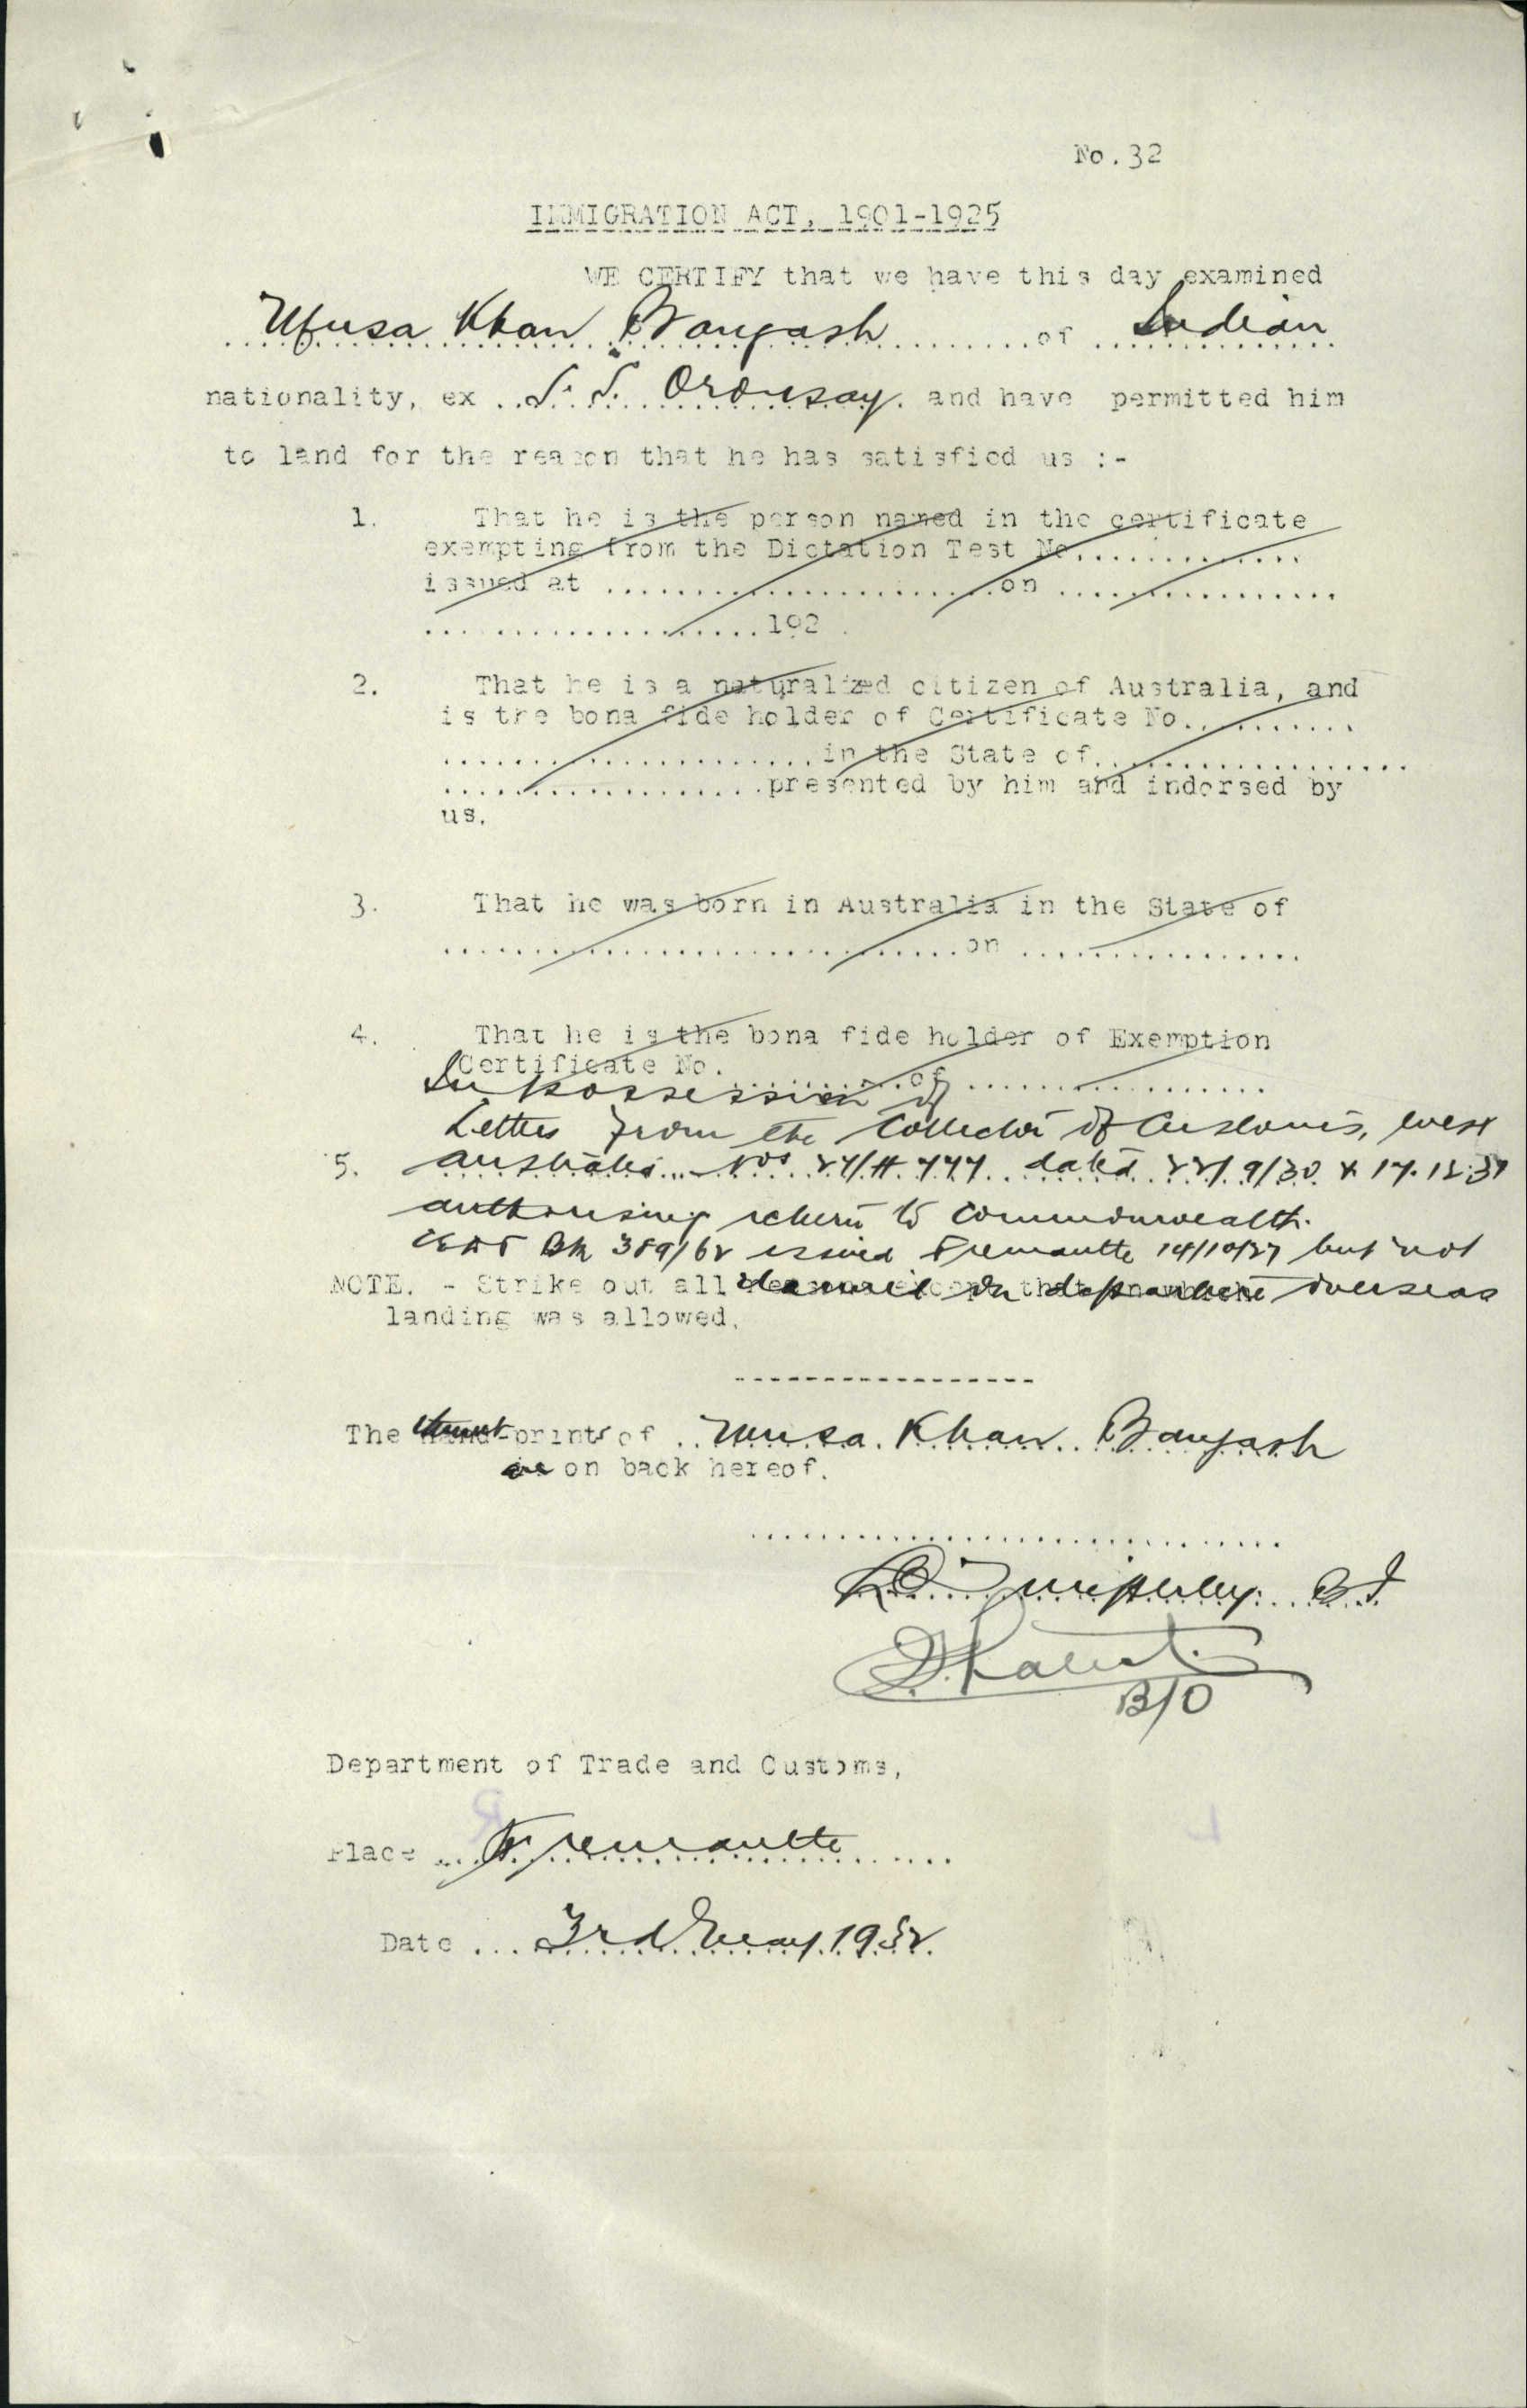 No. 32
IMMIGRATION ACT, 1901-1925
WE CERTIFY that we have this day examined
Musa Khan Bangash of Indian
nationality, ex S.S. Oronsay. and have permitted him
to land for the reason that he has satisfied us :-
1. That he is the person named in the certificate
exempting from the Dictation Test No.............
issued at ......................on ................
...................192 .
2. That he is a naturalized citizen of Australia, and
is the bona fide holder of Certificate No..........
.....................in the State of..................
..................presented by him and indorsed by
us.
3. That he was born in Australia in the State of
.............................on ................
4. That he is the bona fide holder of Exemption
Certificate No. ..........of .................
In possession of
Letters from the Collector of Customs, West
5. Australia Nos 27/H 777 dated 22/9/30 & 17.12.31
authorising return to Commonwealth.
CEDT Bk 389/62 issued Fremantle 14/10/27 but not
NOTE. - Strike out all claimed on departure overseas
landing was allowed.
The thumb prints of Musa Khan Bangash
are on back hereof.
B.I.
B/O
Department of Trade and Customs,
Place Fremantle
Date 3rd May 1932.